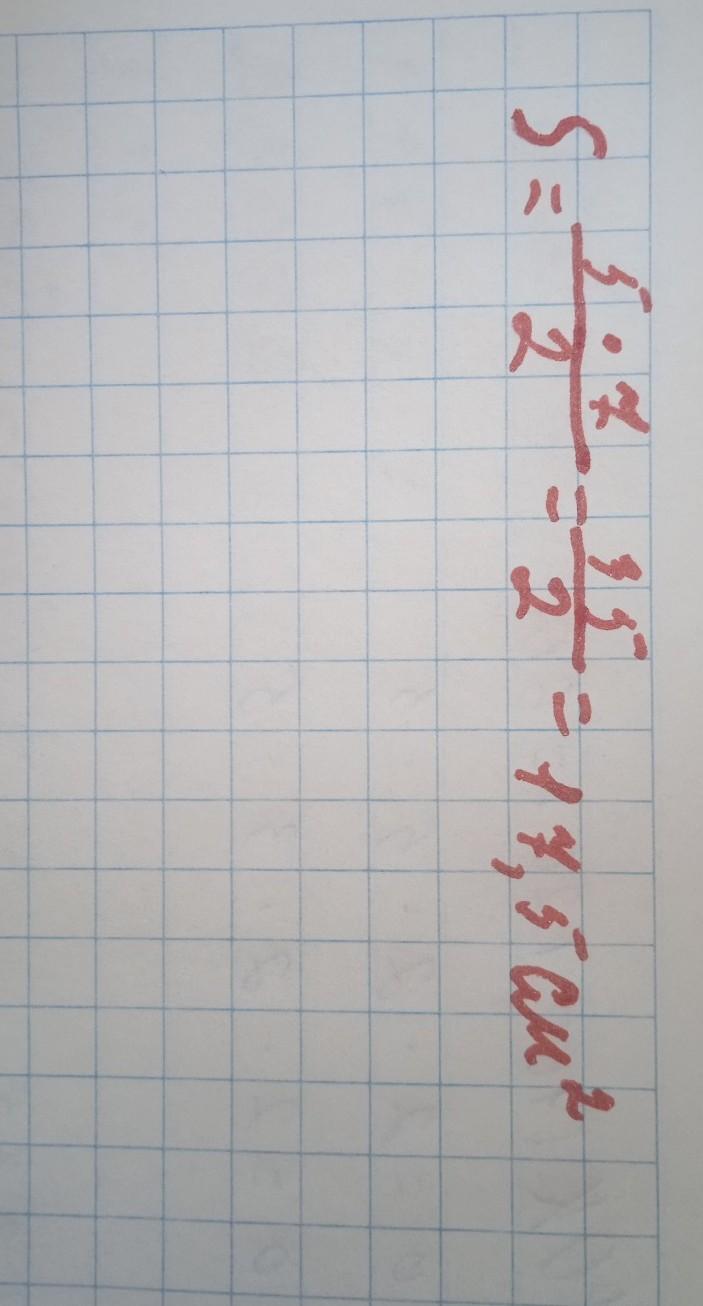 S = \frac{5 \cdot 7}{2} = \frac{35}{2} = 17,5 см²